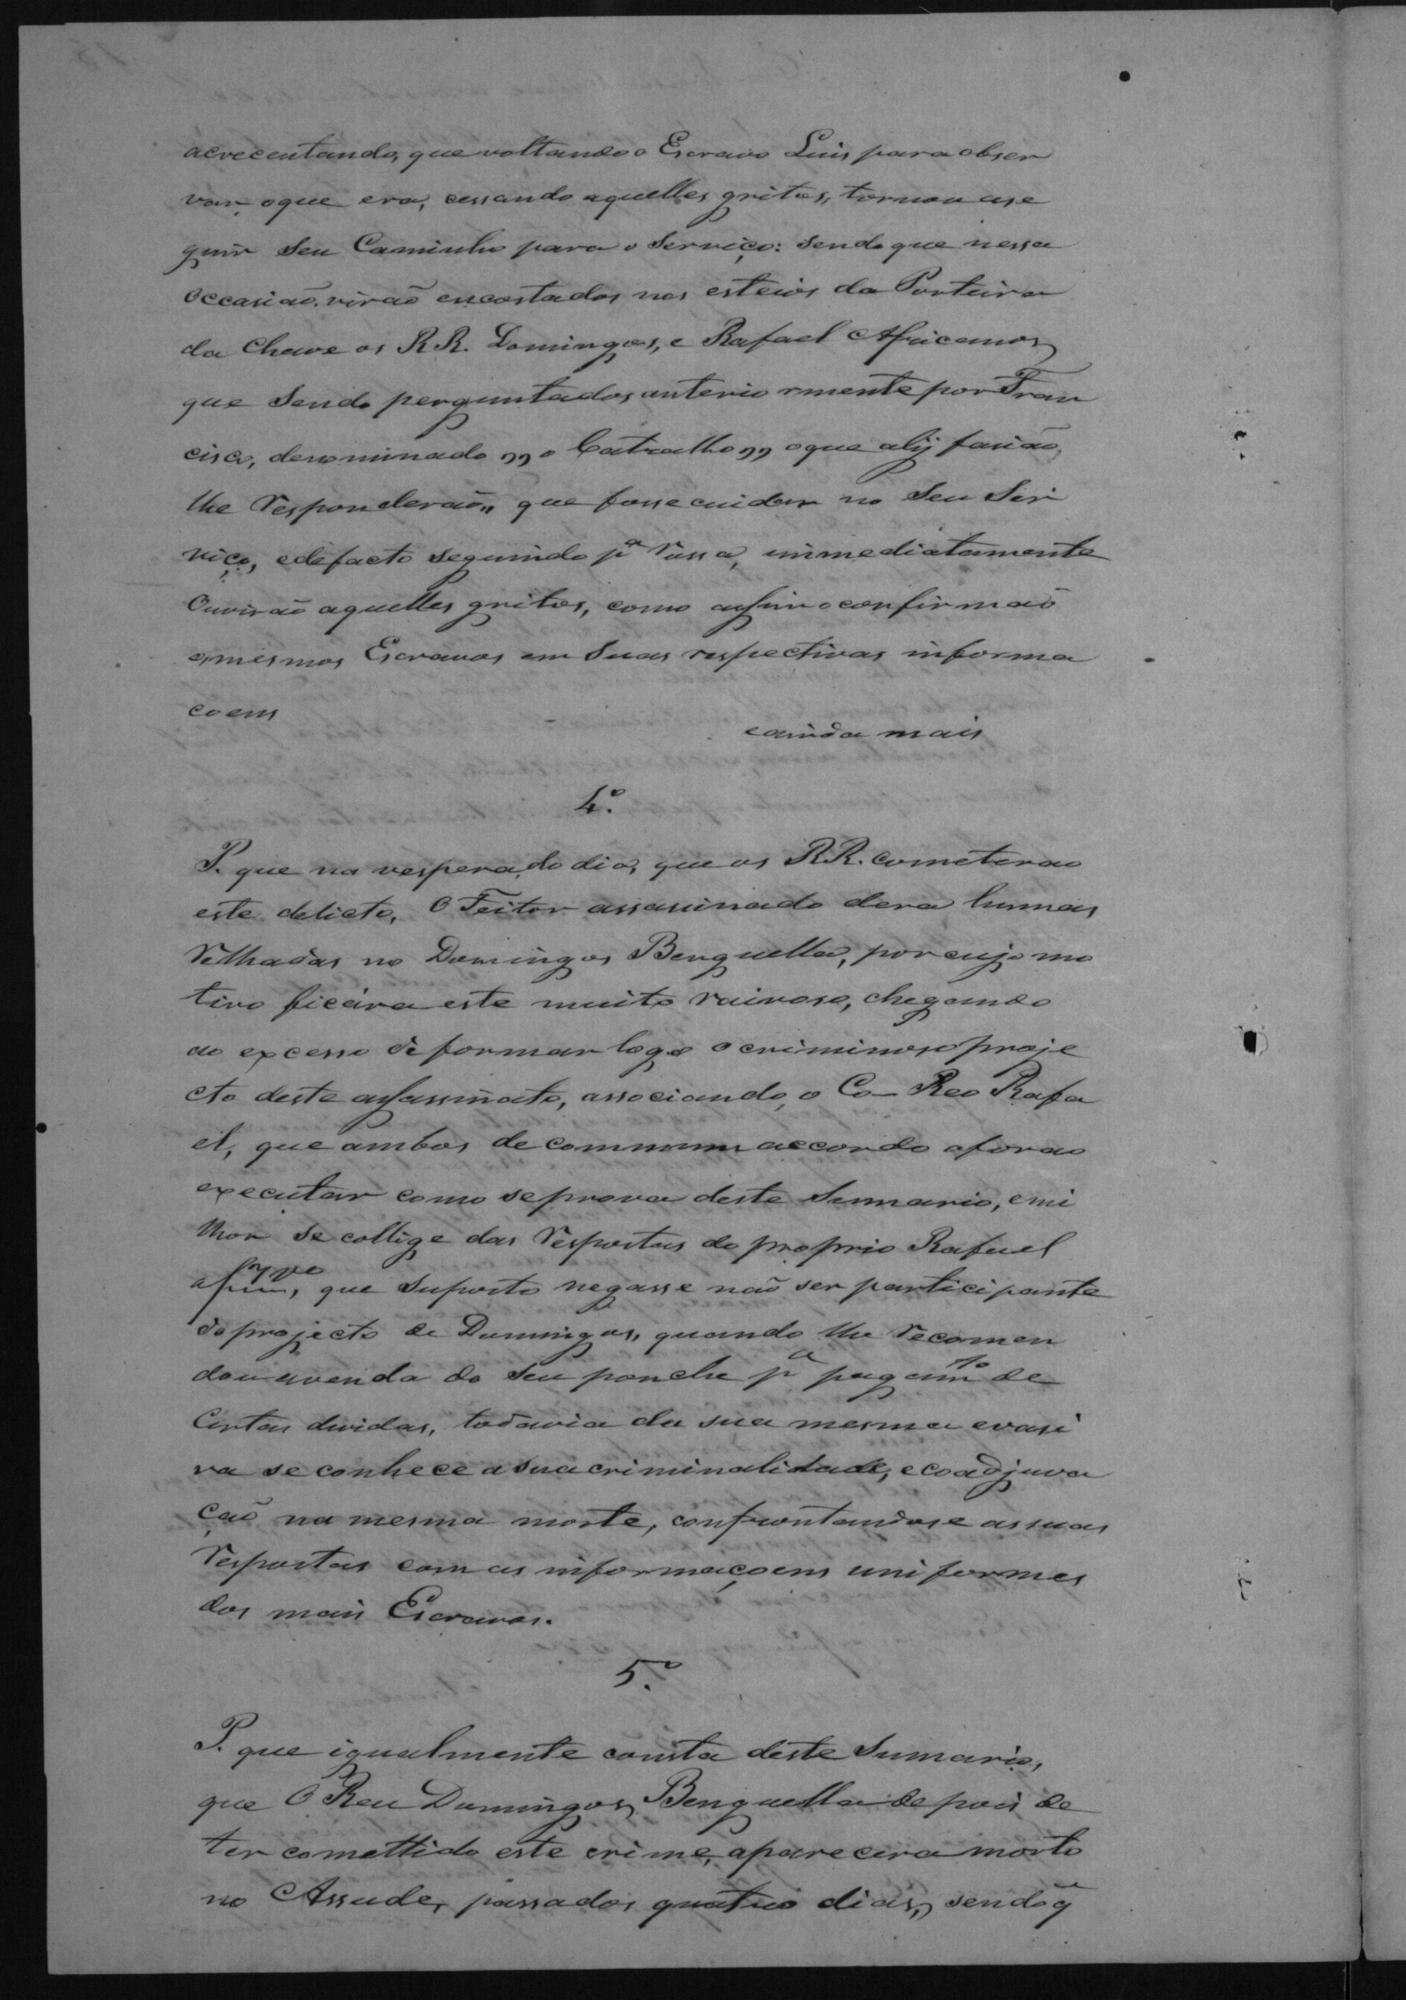 acrecentando, que voltando o Escravo Luis para obser
var oque era, cessando aquelles gritos, tornou ase
guir seu Caminho para o Serviço: sendo que nessa
occasião virão encostados nos esteios da Porteira
da Chave os RR. Domingos, e Rafael Africanos,
que sendo perguntados anteriormente por Fran
cisco, denominado ,, o Catralho ,, oque alij fasião,
lhe responderão,, que fosse cuidar no seu Ser
viço, edefacto seguindo pª rossa, immediatamente
Ouvirão aquelles gritos, como assim o confirmaõ
osmesmos Escravos em suas respectivas informa
coens
eainda mais
4º.
P. que na vespera do dia, que os RR. cometerao
este delicto, O Feitor assasinado dera humas
relhadas no Domingos Benguella, por cujo mo
tivo ficára este muito raivoso, chegando
ao excesso de formar logo o criminoso proje
cto deste assassinato, associando, o Co-Reo Rafa
el, que ambos de commum accordo aforao
executar como seprova deste Summario, emi
lhor se collige das respostas do proprio Rafael
que suposto negasse naõ ser participante
do projecto de Domingos, quando lhe recomen
dou avenda do seu ponche pª pagamto de
Certas dividas, todavia da sua mesma evasi
va se conhece a sua criminalidade, ecoadjuva
ção na mesma morte, confrontandose as suas
respostas com as informaçoens uniformes
dos mais Escravos.
5º.
P. que igualmente consta deste Sumario,
que O Reu Domingos Benguella depois de
ter comettido este crime, aparecera morto
no Assude, passados quatro dias, sendo q̃